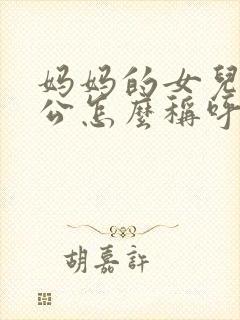 妈妈的女兒
公怎麼稱呼
胡嘉許